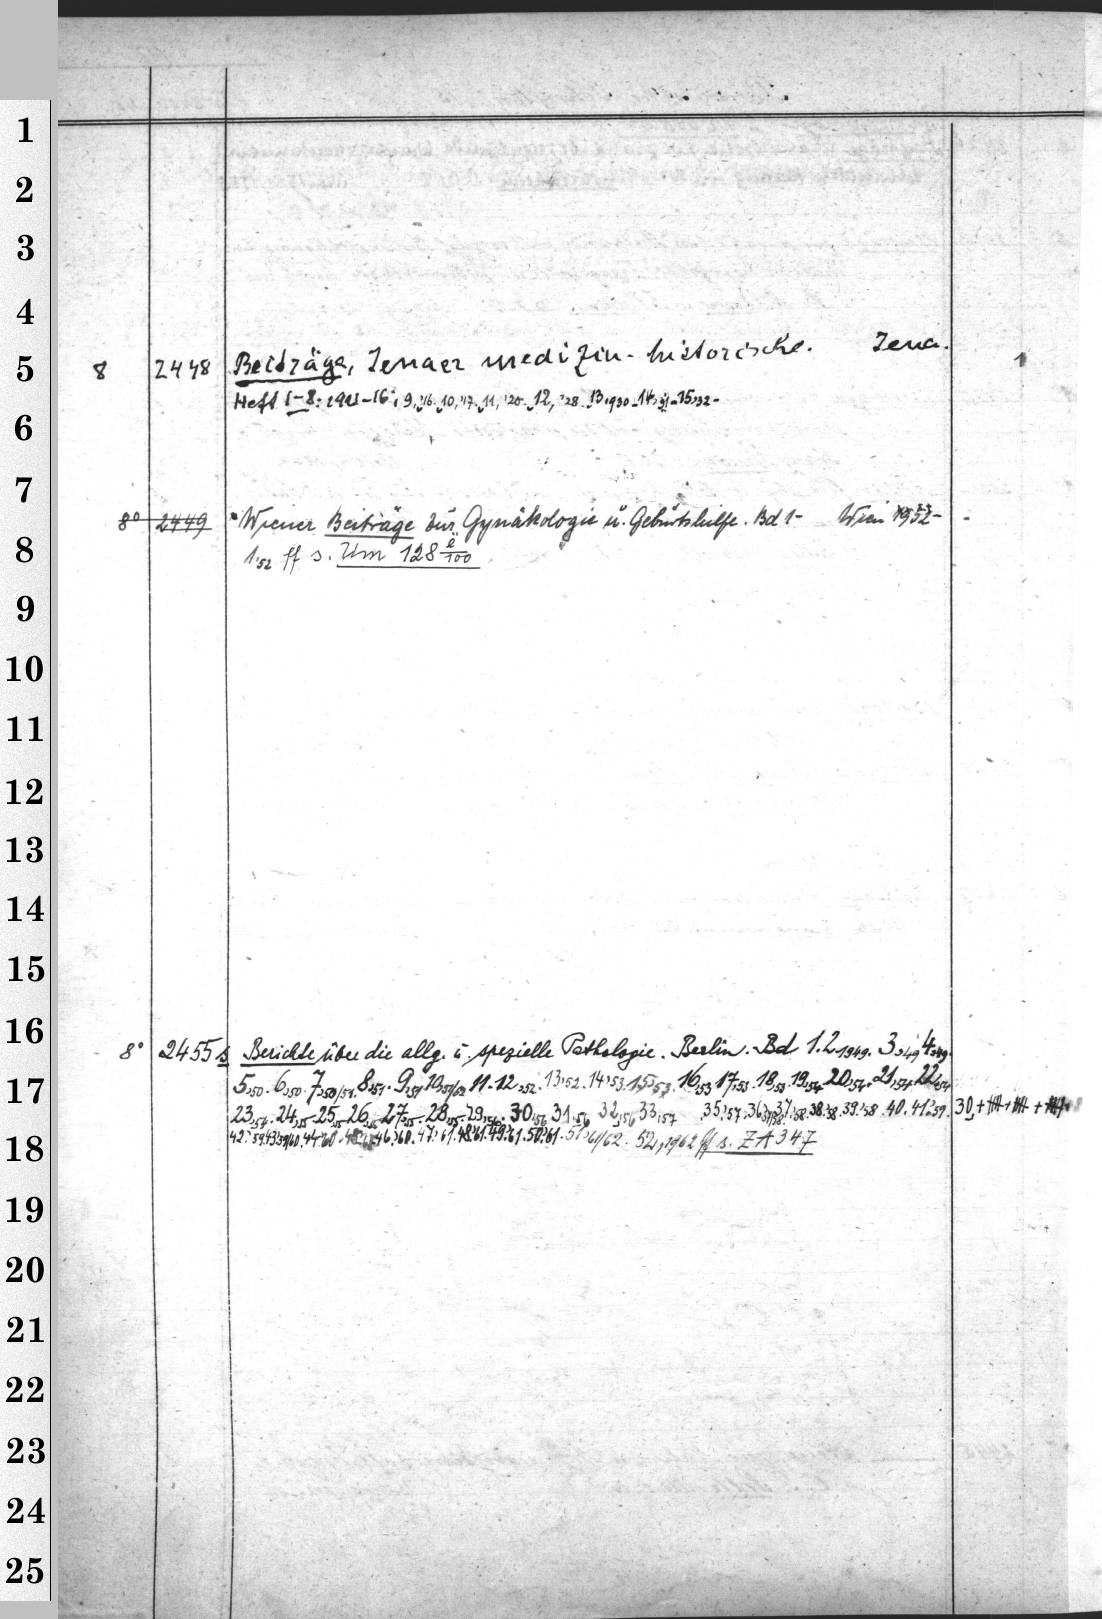 1
2
3
4
5
8 2448 Beiträge, Jenaer medizin-historische. Jena. 1
Heft 1-8: 1911-16; 9,'16. 10,'17. 11,'20. 12,'28. 13,1930. 14,31. 15,32-
6
7
8° 2449 Wiener Beiträge zur Gynäkologie u. Geburtshilfe. Bd 1- Wien 1952-
8
1,52 ff s. Um 128 e/100
9
10
11
12
13
14
15
16
8° 2455 s Berichte über die allg. u. spezielle Pathologie. Berlin. Bd 1.2,1949. 3,49 4,49.
17
5,50. 6,50. 7,50/51. 8,51. 9,51 10,51/52 11. 12,52. 13,52. 14,53. 15,53. 16,53 17,53. 18,53 19,54 20,54. 21,54. 22,54
23,54. 24,55. 25,55. 26,55. 27,55. 28,55. 29, 30,56 31,56 32,56 33,57 35,57. 36, 37,58. 38,58. 39,58. 40. 41,59. 30,+
18
42, 59. 43,59/60. 44,60. 46,60. 47,61. 48,61. 49,61. 50,61. 51,61/62. 52,1962 ff s. ZA 347
19
20
21
22
23
24
25